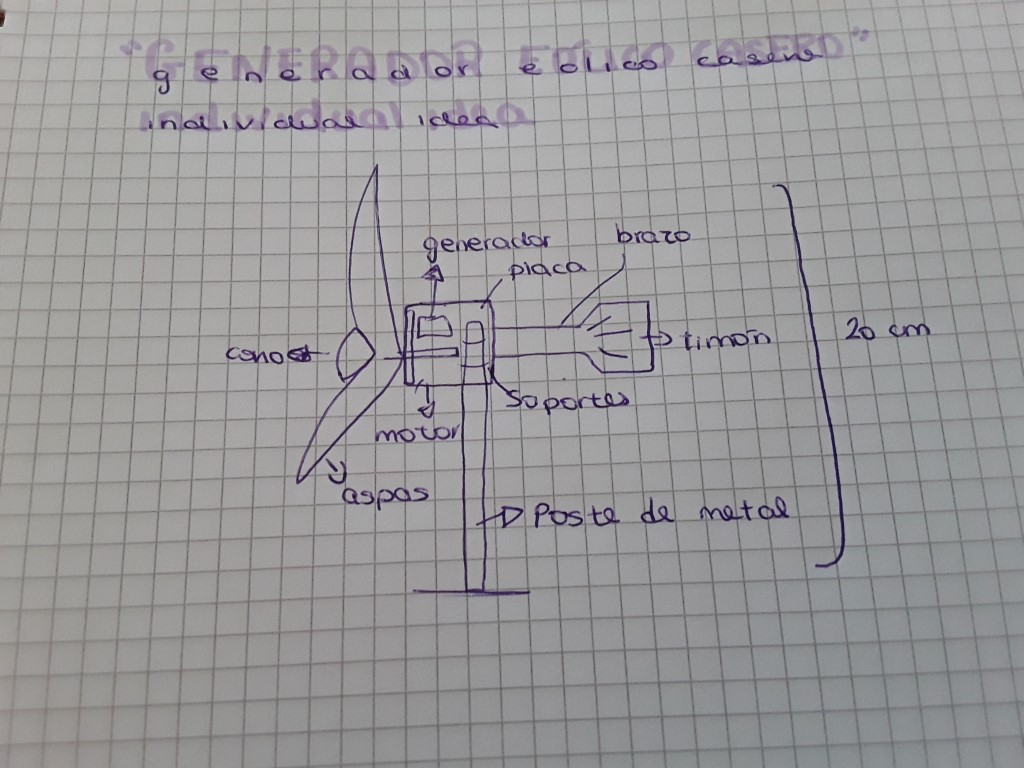 "GENERADOR EÓLICO CASERO"
individual idea
generador
brazo
placa
cono
timón
20 cm
soportes
motor
aspas
Poste de metal